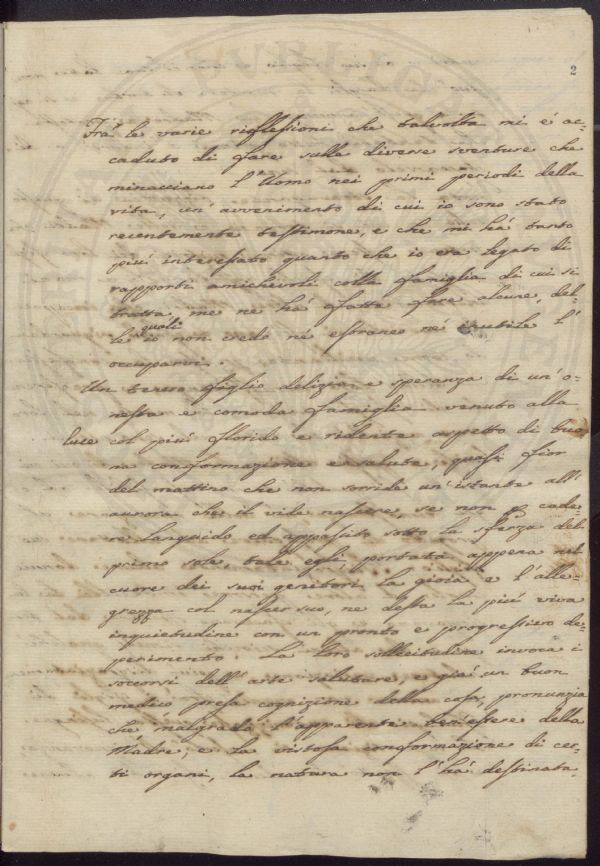 2
Frà le varie riflessioni che talvolta mi è ac-
caduto di fare sulla diverse sventure che
minacciano l'Uomo nei primi periodi della
vita, un'avvenimento di cui io sono stato
recentemente testimone, e che mi hà tanto
più interessato quanto che io era legato di
rapporti amichevoli colla famiglia di cui si
tratta, me ne hà fatte fare alcune, del-
le quali io non credo né estraneo né inutile l'
occuparvi.
Un tenero figlio delizia e speranza di un'o-
nesta e comoda famiglia venuto alla
luce col più florido e ridente aspetto di buo
na conformazione e salute, quasi fior
del mattino che non sorride un'istante all'
aurora che il vide nascere, se non p cade-
re languido ed appassito sotto la sferza del
primo sole, tale egli, portata appena nel
cuore dei suoi genitori la gioia e l'alle-
grezza col nascer suo, ne desta la più viva
inquietudine con un pronto e progressivo de-
perimento. La loro sollecitudine invoca i
socorsi dell'arte salutare, e già un buon
medico presa cognizione della cosa, pronunzia
che malgrado l'apparente benessere della
Madre, e la vistosa conformazione di cer-
ti organi, la natura non l'hà destinata